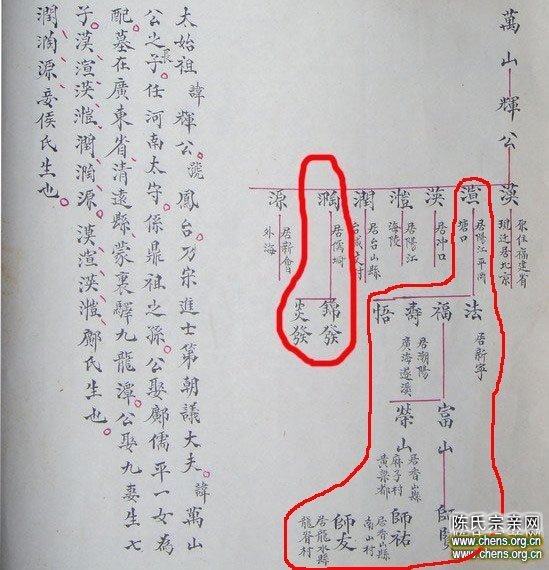 萬山輝公
漢
原住福建省
後迁居北京
澋
居陽江平岡
塘口
漠
居冲口
溰
居陽江
海陵
潤
居台山縣
澫
居儒垌
源
居新會
外海
法
居新寧
福
壽
居潮陽
廣海遂溪
悟
錦發
炎發
富山
榮山
居香山縣
麻子村
黃梁都
師賢
師祐
居香山縣
南山村
師友
居龍水縣
龍脊村
太始祖諱輝公號鳳台乃宋進士第朝議大夫諱萬山
公之長子任河南太守係鼎祖之孫公娶鄺儒平一女為
配墓在廣東省清遠縣蒙裏驛九龍潭公娶九妻生七
子漢澋漠溰潤澫源漢澋漠溰鄺氏生也
潤澫源妾侯氏生也
陈氏宗亲网
www.chens.org.cn